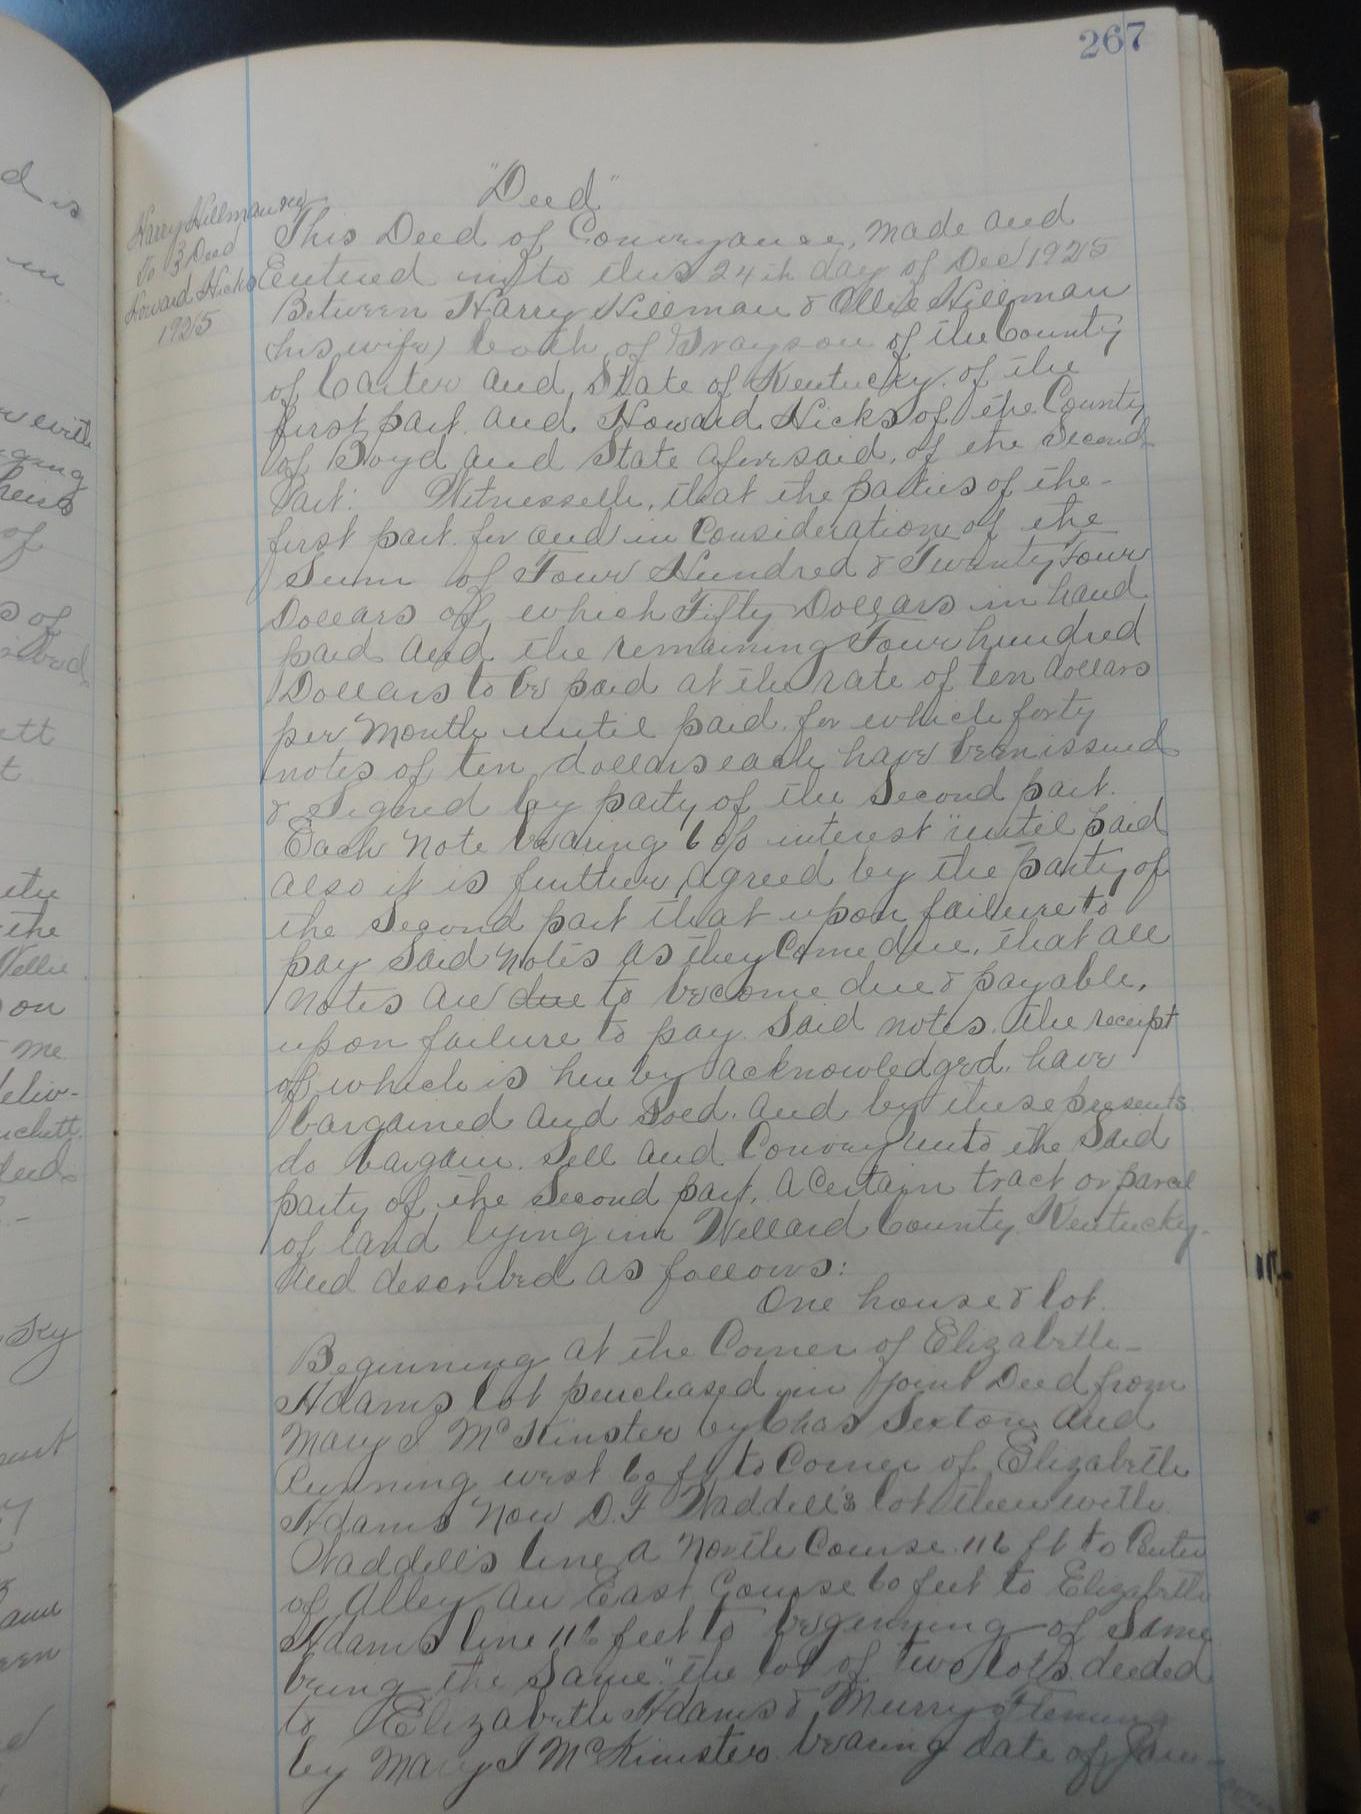 267
"Deed"
Harry Hillman &c
To } Deed
Howard Hicks
1925
This Deed of Conveyance, made and
Entered into this 24th day of Dec 1925
Between Harry Hillman & Ollie Hillman
(his wife) both of Grayson of the County
of Carter and State of Kentucky. of the
first part and Howard Hicks of the County
of Boyd and State aforesaid, of the Second
Part: Witnesseth, that the parties of the-
first part for and in Consideration of the
Sum of Four Hundred & Twenty Four
Dollars of which Fifty Dollars in hand
paid and the remaining Four hundred
Dollars to be paid at the rate of ten dollars
per Month until paid. for which forty
notes of ten dollars each have been issued
& signed by party of the Second part.
Each Note bearing 6% interest "until paid
also it is further agreed by the Party of
the Second part that upon failure to
pay Said Notes as they Come due, that all
Notes are due to become due & payable,
upon failure to pay Said notes. the receipt
of which is hereby acknowledged, have
bargained and Sold. and by these presents
do bargain. Sell and Convey unto the Said
party of the Second part, a Certain tract or parcel
of land lying in Willard County Kentucky-
and described as follows:
One house & lot.
Beginning at the Corner of Elizabeth-
Adams lot purchased in Joint Deed from
Mary I McKinster by Chas Sexton and
Running west 60 ft to Corner of Elizabeth
Adams Now D.F Waddell's lot then with
Waddell's line a North Course 116 ft to Center
of Alley an East Course 60 feet to Elizabeth
Adams line 116 feet to beginning of Same
being the Same" the lot of two lots deeded
to Elizabeth Adams & Murry Fleming
by Mary I McKinster bearing date of Jan-